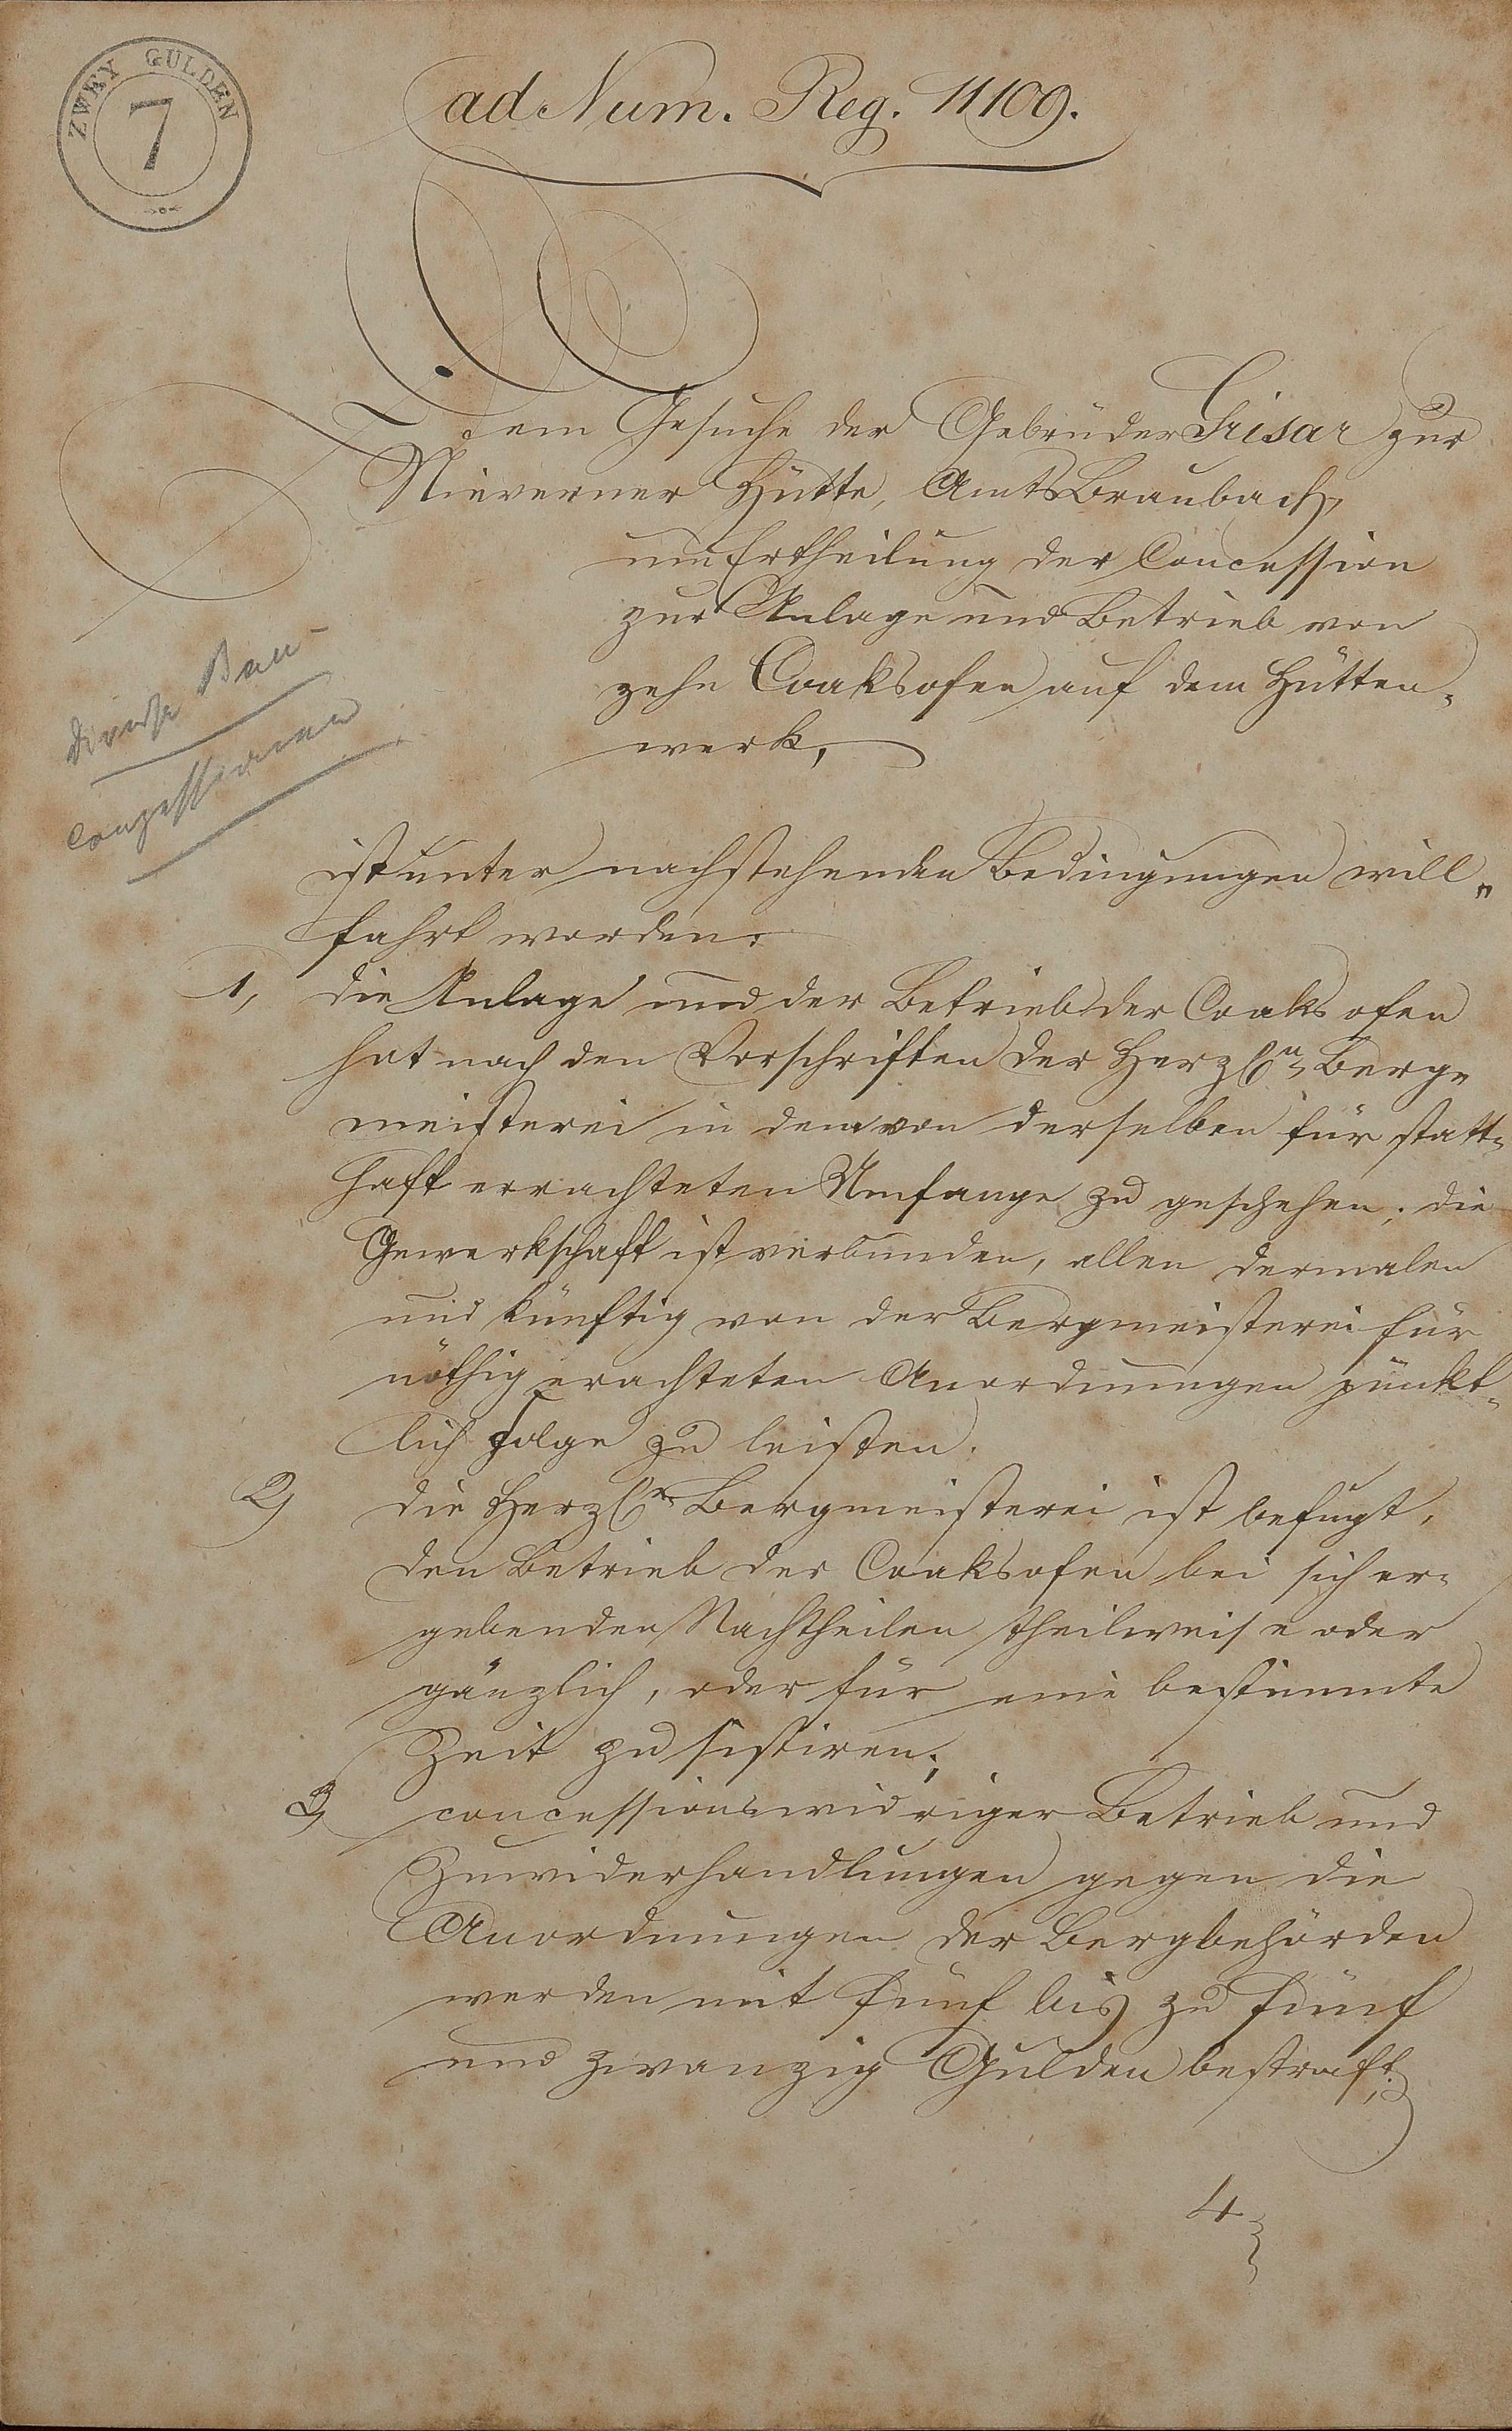 ZWEY GULDEN
7
ad Num. Reg. 11109.
Dem Gesuche der Gebrüder Grisar zur
Nieverner Hütte, Amts Braubach,
um Ertheilung der Concession
zur Anlage und Betrieb von
zehn Coaksofen auf dem Hütten-
werk,
diverse Bau-
conzessionen
ist unter nachstehenden Bedingungen will-
fahrt worden:
1, die Anlage und der Betrieb der Coaksofen
hat nach den Vorschriften der Herzgln Berg-
meisterei in dem von derselben für statt-
haft erachteten Umfange zu geschehen; die
Gewerkschaft ist verbunden, allen dermalen
und künftig von der Bergmeisterei für
nöthig erachteten Anordnungen pünkt-
lich Folge zu leisten.
2, die Herzgl Bergmeisterei ist befugt,
den Betrieb der Coaksofen bei sich er-
gebenden Nachtheilen theilweise oder
gänzlich, oder für eine bestimmte
Zeit zu sistiren;
3, concessionswidriger Betrieb und
Zuwiderhandlungen gegen die
Anordnungen der Bergbehörden
werden mit fünf bis zu fünf
und zwanzig Gulden bestraft;
4